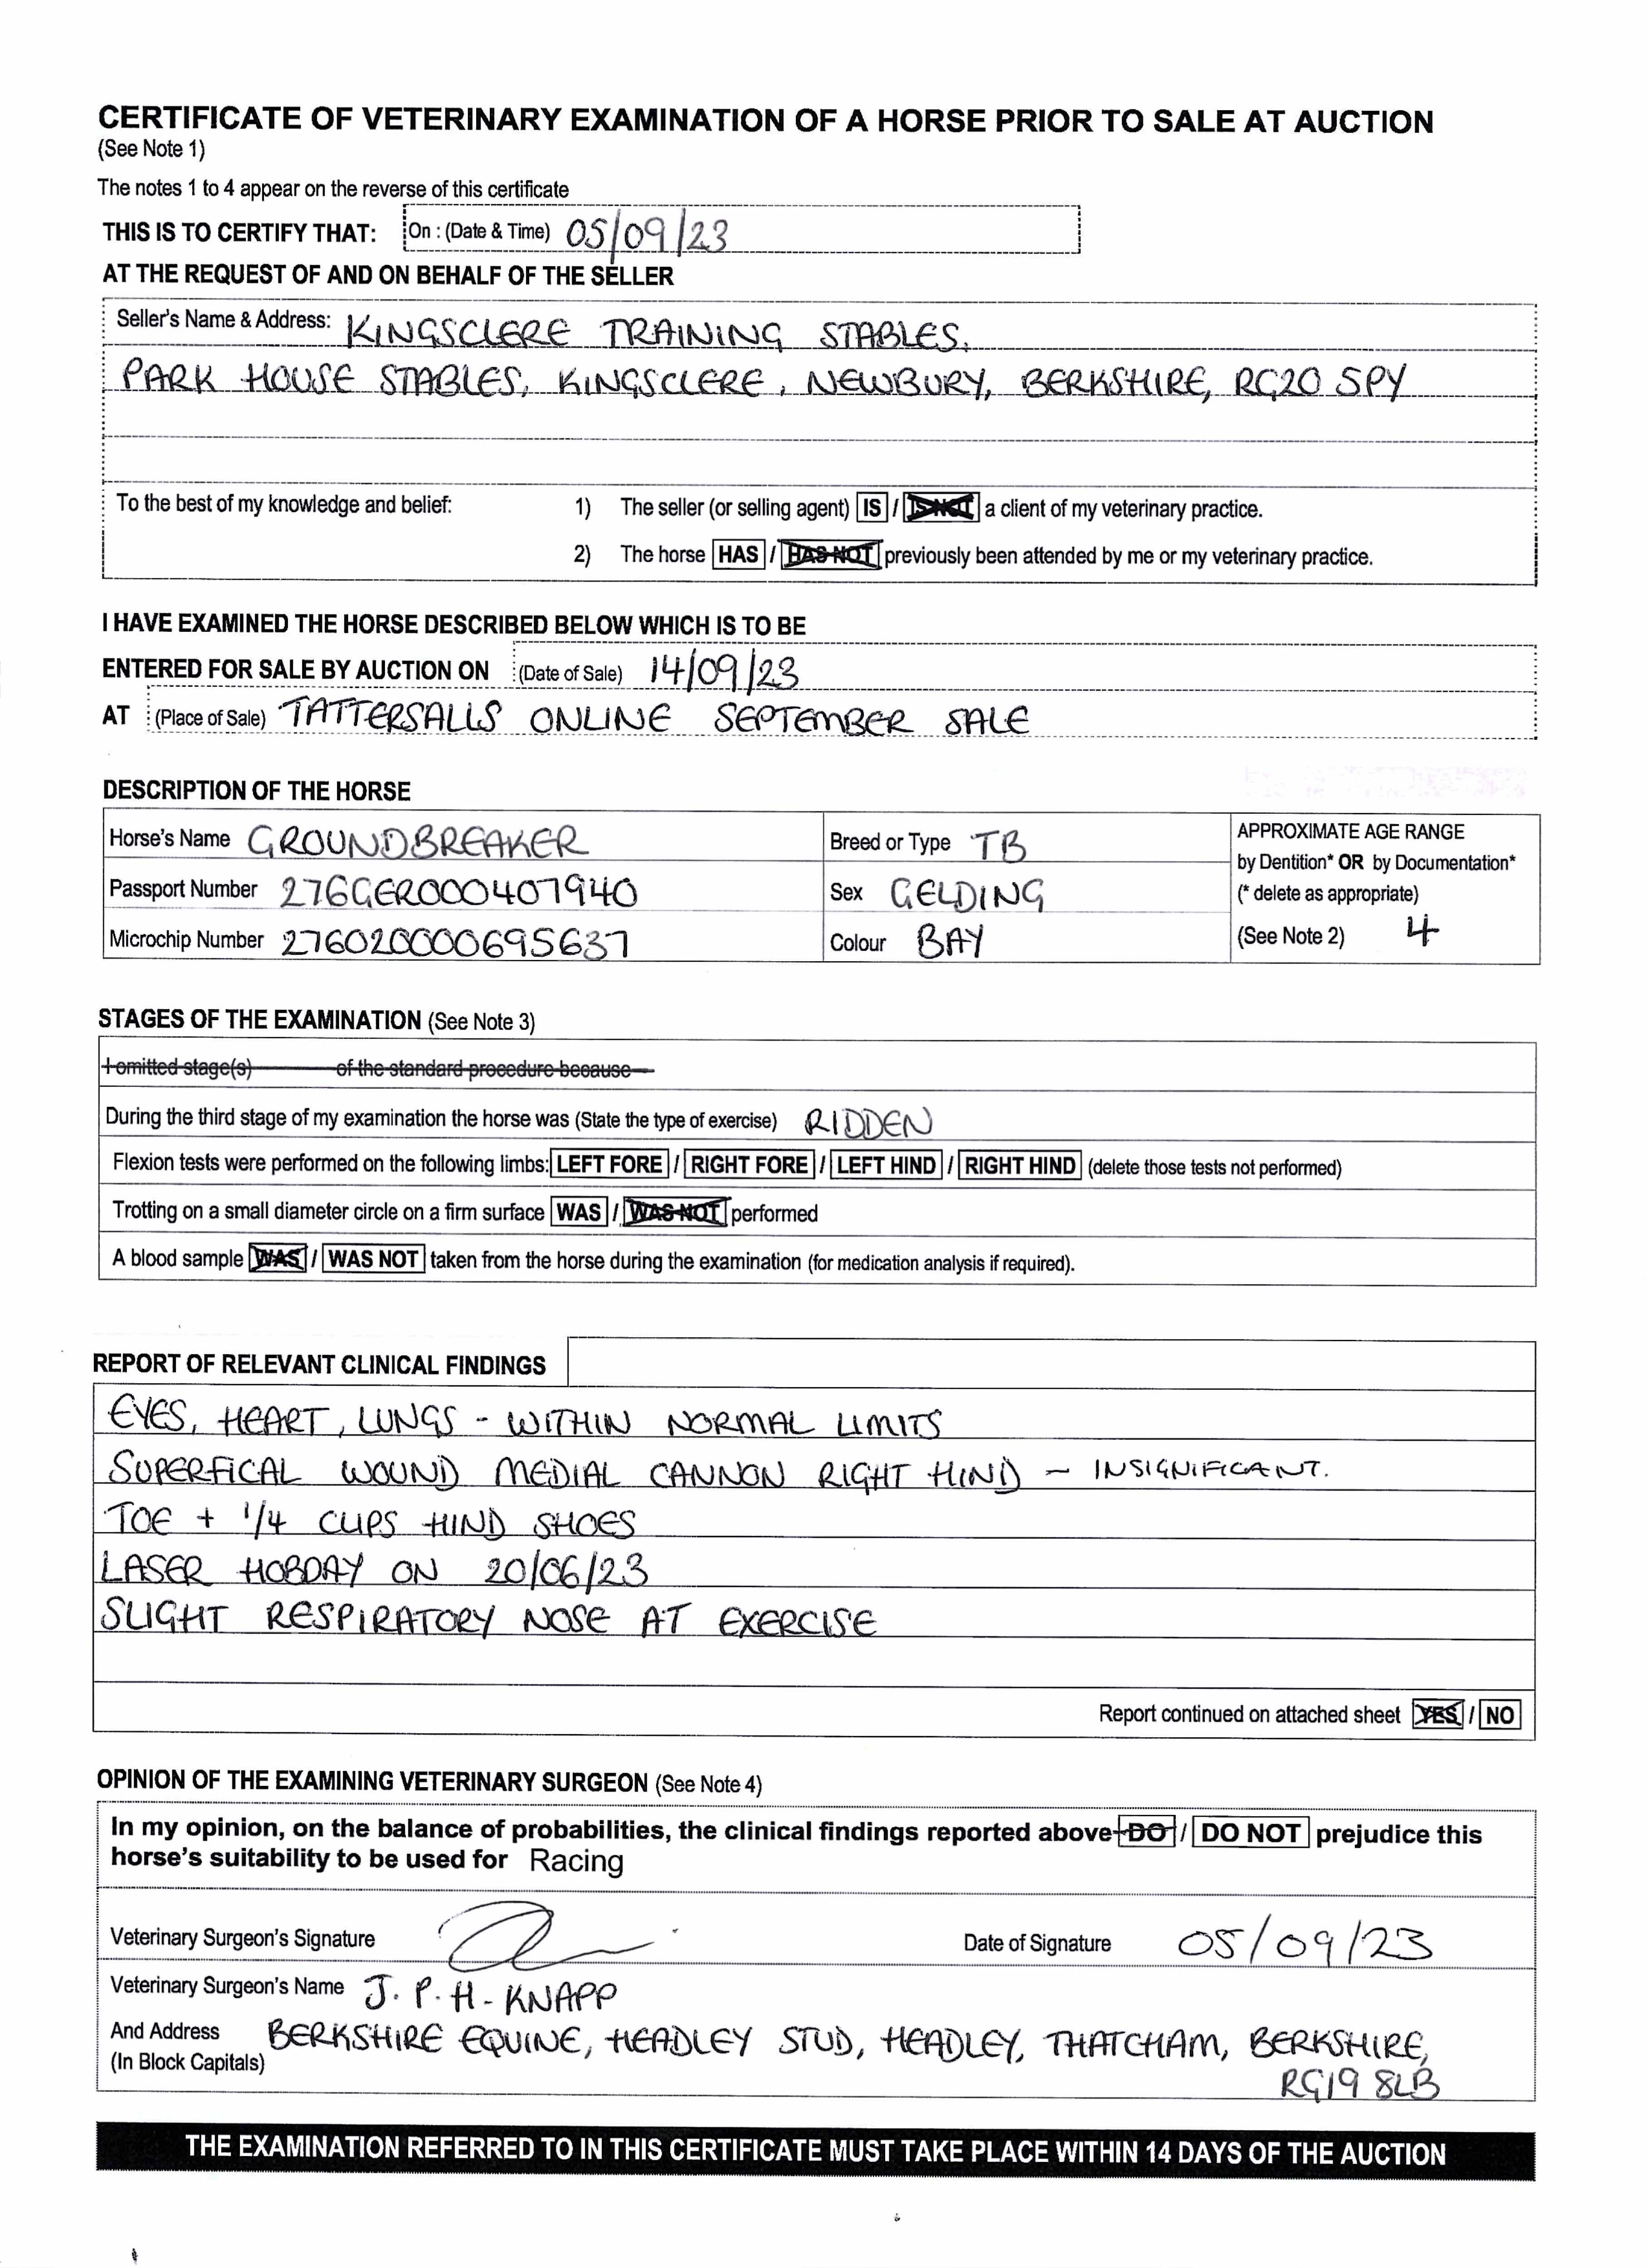 CERTIFICATE OF VETERINARY EXAMINATION OF A HORSE PRIOR TO SALE AT AUCTION
(See Note 1)
The notes 1 to 4 appear on the reverse of this certificate
THIS IS TO CERTIFY THAT: On : (Date & Time) 05/09/23
AT THE REQUEST OF AND ON BEHALF OF THE SELLER
Seller's Name & Address: KINGSCLERE TRAINING STABLES,
PARK HOUSE STABLES, KINGSCLERE, NEWBURY, BERKSHIRE, RG20 5PY
To the best of my knowledge and belief: 1) The seller (or selling agent) IS / IS NOT a client of my veterinary practice.
2) The horse HAS / HAS NOT previously been attended by me or my veterinary practice.
I HAVE EXAMINED THE HORSE DESCRIBED BELOW WHICH IS TO BE
ENTERED FOR SALE BY AUCTION ON (Date of Sale) 14/09/23
AT (Place of Sale) TATTERSALLS ONLINE SEPTEMBER SALE
DESCRIPTION OF THE HORSE
Horse's Name GROUNDBREAKER Breed or Type TB APPROXIMATE AGE RANGE
by Dentition* OR by Documentation*
Passport Number 276GER000407940 Sex GELDING (* delete as appropriate)
Microchip Number 276020000695637 Colour BAY (See Note 2) 4
STAGES OF THE EXAMINATION (See Note 3)
I omitted stage(s) of the standard procedure because
During the third stage of my examination the horse was (State the type of exercise) RIDDEN
Flexion tests were performed on the following limbs: LEFT FORE / RIGHT FORE / LEFT HIND / RIGHT HIND (delete those tests not performed)
Trotting on a small diameter circle on a firm surface WAS / WAS NOT performed
A blood sample WAS / WAS NOT taken from the horse during the examination (for medication analysis if required).
REPORT OF RELEVANT CLINICAL FINDINGS
EYES, HEART, LUNGS - WITHIN NORMAL LIMITS
SUPERFICAL WOUND MEDIAL CANNON RIGHT HIND - INSIGNIFICANT.
TOE + 1/4 CLIPS HIND SHOES
LASER HOBDAY ON 20/06/23
SLIGHT RESPIRATORY NOSE AT EXERCISE
Report continued on attached sheet YES / NO
OPINION OF THE EXAMINING VETERINARY SURGEON (See Note 4)
In my opinion, on the balance of probabilities, the clinical findings reported above DO / DO NOT prejudice this
horse's suitability to be used for Racing
Veterinary Surgeon's Signature Date of Signature 05/09/23
Veterinary Surgeon's Name J. P. H - KNAPP
And Address BERKSHIRE EQUINE, HEADLEY STUD, HEADLEY, THATCHAM, BERKSHIRE,
(In Block Capitals) RG19 8LB
THE EXAMINATION REFERRED TO IN THIS CERTIFICATE MUST TAKE PLACE WITHIN 14 DAYS OF THE AUCTION